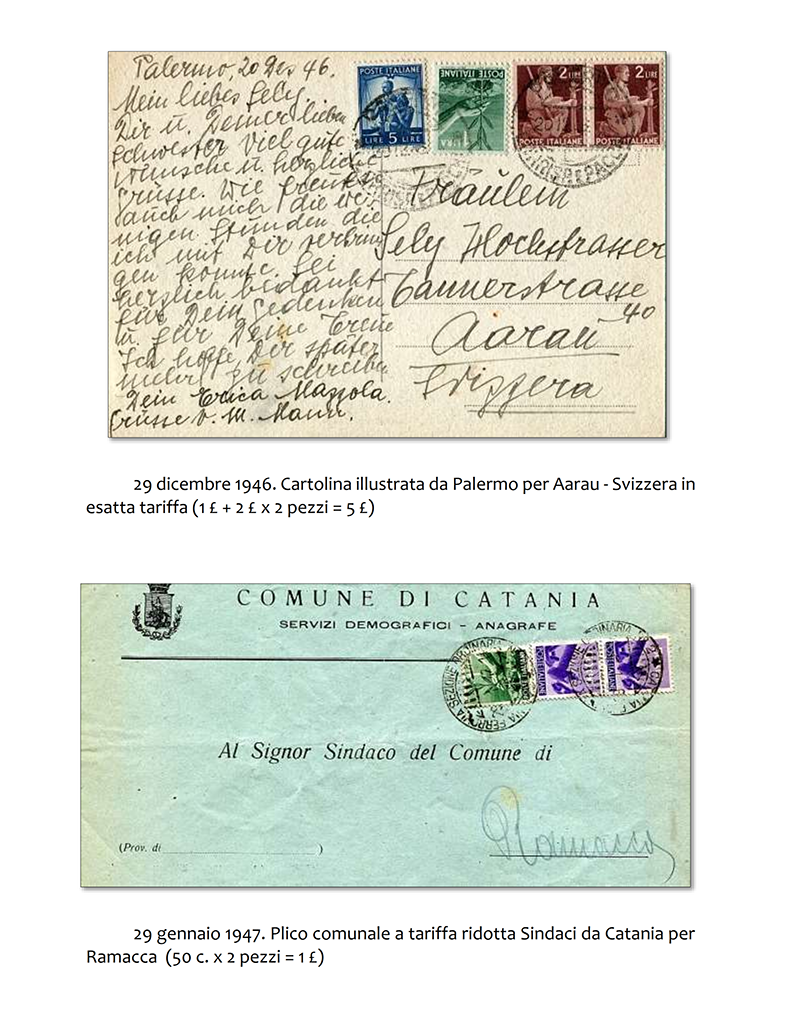 Palermo, 20 Dez 46.
Mein liebes Sely
Dir u. Deiner lieben
Schwester viel gute
Wünsche u. herzlich
Grüsse. Wie freute
auch mich die we-
nigen Stunden die
ich mit Dir verbrin-
gen konnte. Sei
herzlich bedankt
für Dein Gedenken
u. für Deine Treue
Ich hoffe, Dir später
mehr zu schreiben
Dein Erica Mazzola.
Grüsse v. M. Mann.
POSTE ITALIANE
LIRE 5 LIRE
POSTE ITALIANE
1 LIRA
2 LIRE
POSTE ITALIANE
2 LIRE
POSTE ITALIANE
Fräulein
Sely Hochstrasser
Tannerstrasse
40
Aarau
Svizzera
29 dicembre 1946. Cartolina illustrata da Palermo per Aarau - Svizzera in
esatta tariffa (1 £ + 2 £ x 2 pezzi = 5 £)
COMUNE DI CATANIA
SERVIZI DEMOGRAFICI – ANAGRAFE
Al Signor Sindaco del Comune di
Ramacca
(Prov. di )
29 gennaio 1947. Plico comunale a tariffa ridotta Sindaci da Catania per
Ramacca (50 c. x 2 pezzi = 1 £)